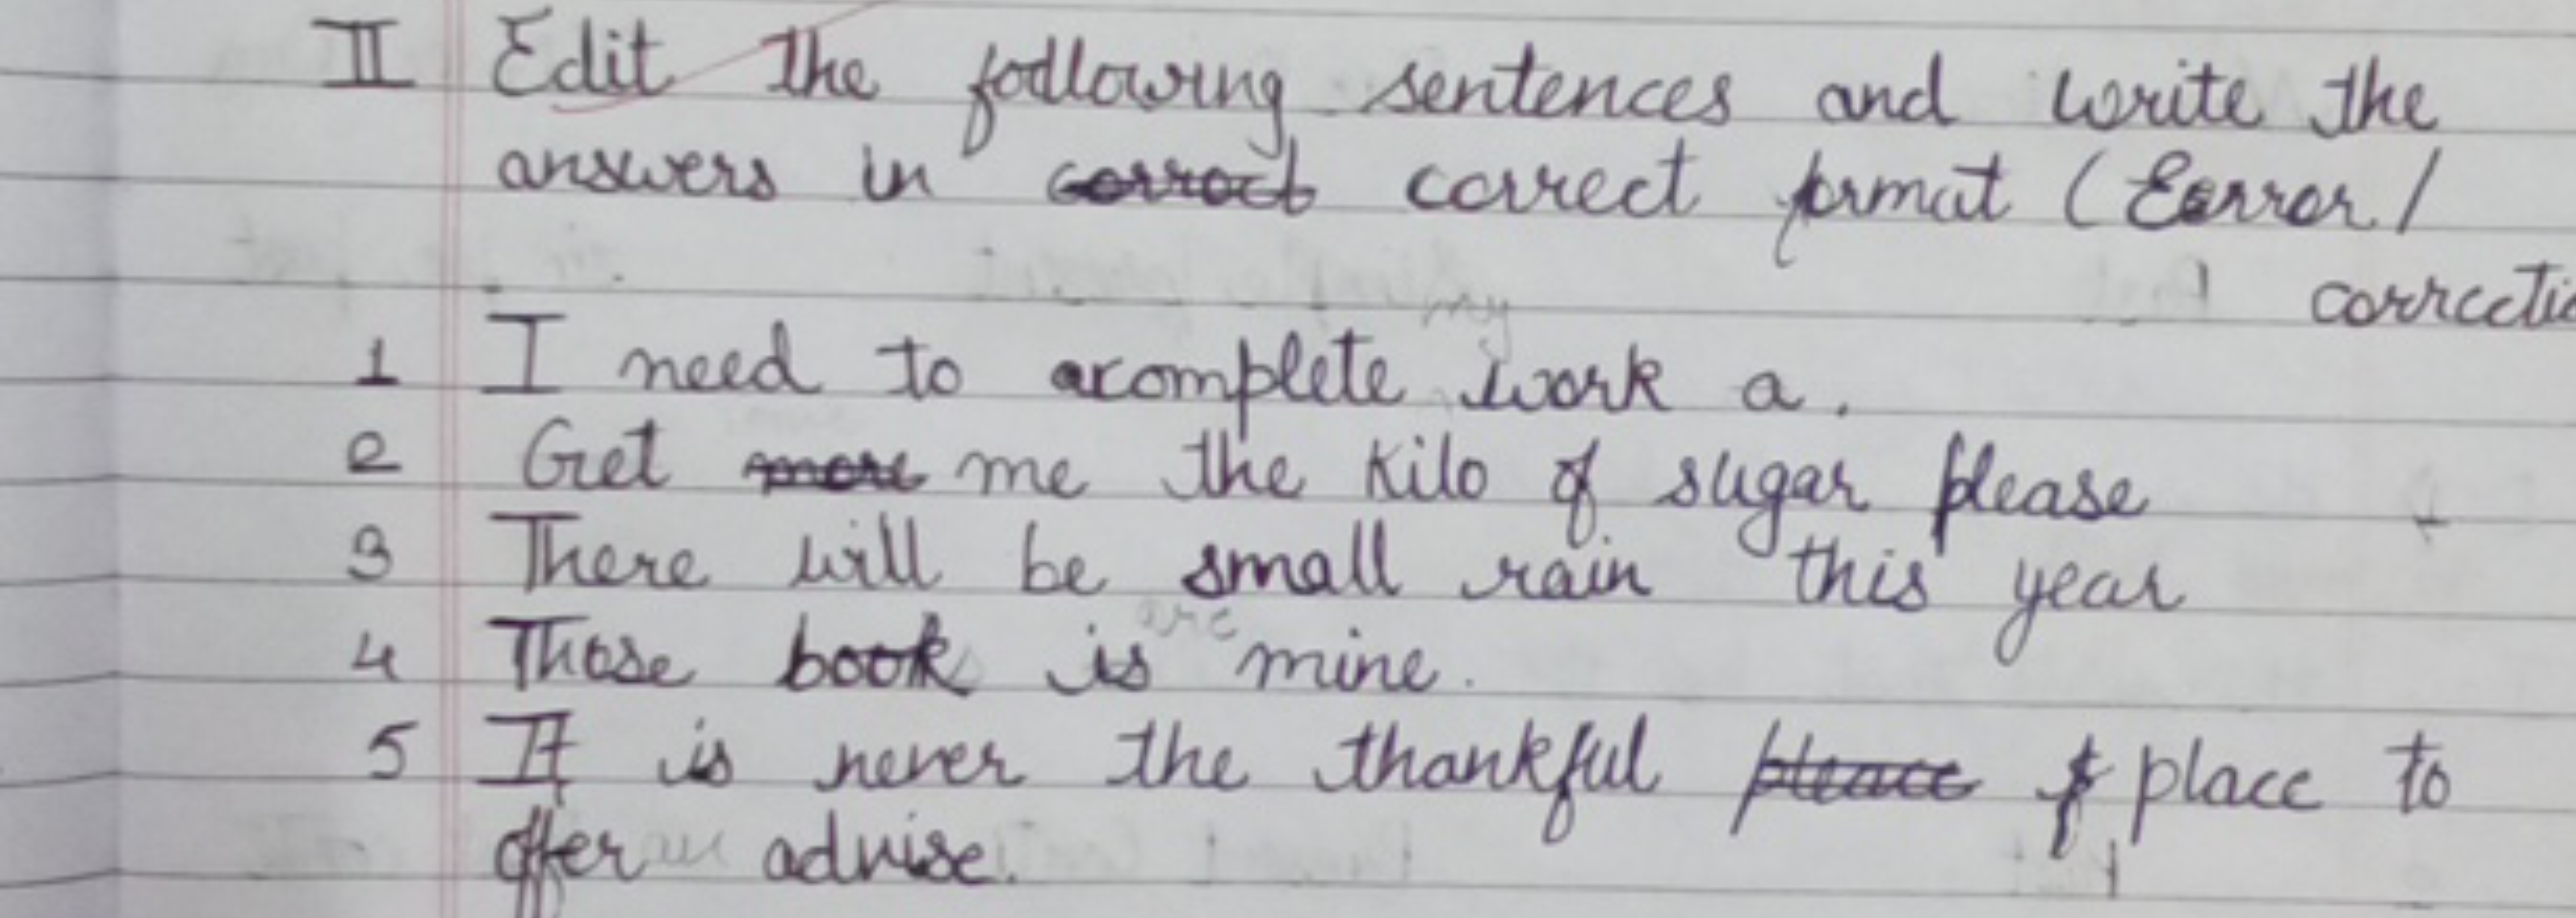 II Edit the following sentences and write the
answers in correct format (Error /
correctio
my
1 I need to acomplete work a.
2 Get me the kilo of sugar please
3 There will be small rain this year
are
4 Those book is mine.
5 It is never the thankful place to
offer advise.